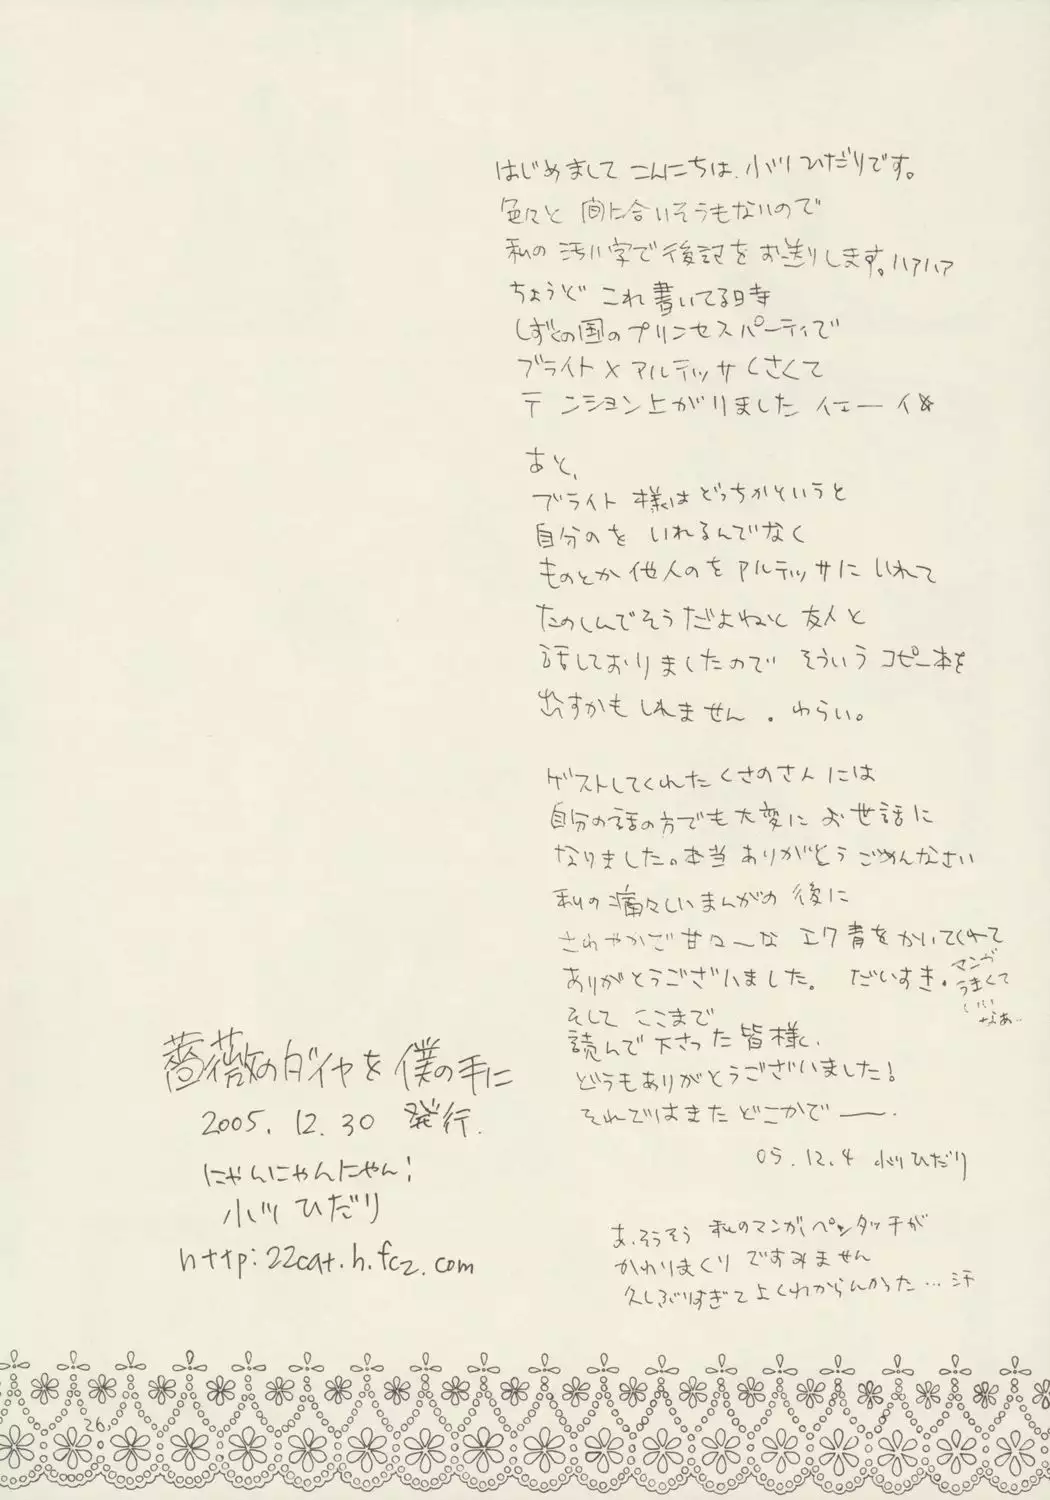 はじめまして こんにちは、小川ひだりです。
色々と 間に合いそうもないので
私の 汚い字で後記を お送りします。ハァハァ
ちょうど これ書いてる時
しずくの国のプリンセスパーティで
ブライト×アルテッサくさくて
テンション上がりました イェーイ☆
あと、
ブライト様はどっちかというと
自分のを いれるんでなく
ものとか他人のをアルテッサに いれて
たのしんでそうだよねーと 友人と
話しておりましたので そういう コピー本を
出すかも しれません。わらい。
ゲストしてくれた くさのさんには
自分の話の方でも大変に お世話に
なりました。本当 ありがとう ごめんなさい
私の痛々しいまんがの 後に
さわやかで甘々〜な エク青をかいてくれて
ありがとうございました。 だいすき。
マンガ
うまくて
いい
なあ..
そして ここまで
読んで下さった皆様、
どうもありがとうございました!
それではまた どこかで――.
05.12.4 小川ひだり
あ、そうそう 私のマンガ、ペンタッチが
かわりまくり ですみません
久しぶりすぎて よくわからんかった…汗
薔薇のダイヤを僕の手に
2005.12.30 発行.
にゃんにゃんにゃん!
小川ひだり
http:22cat.h.fc2.com
26